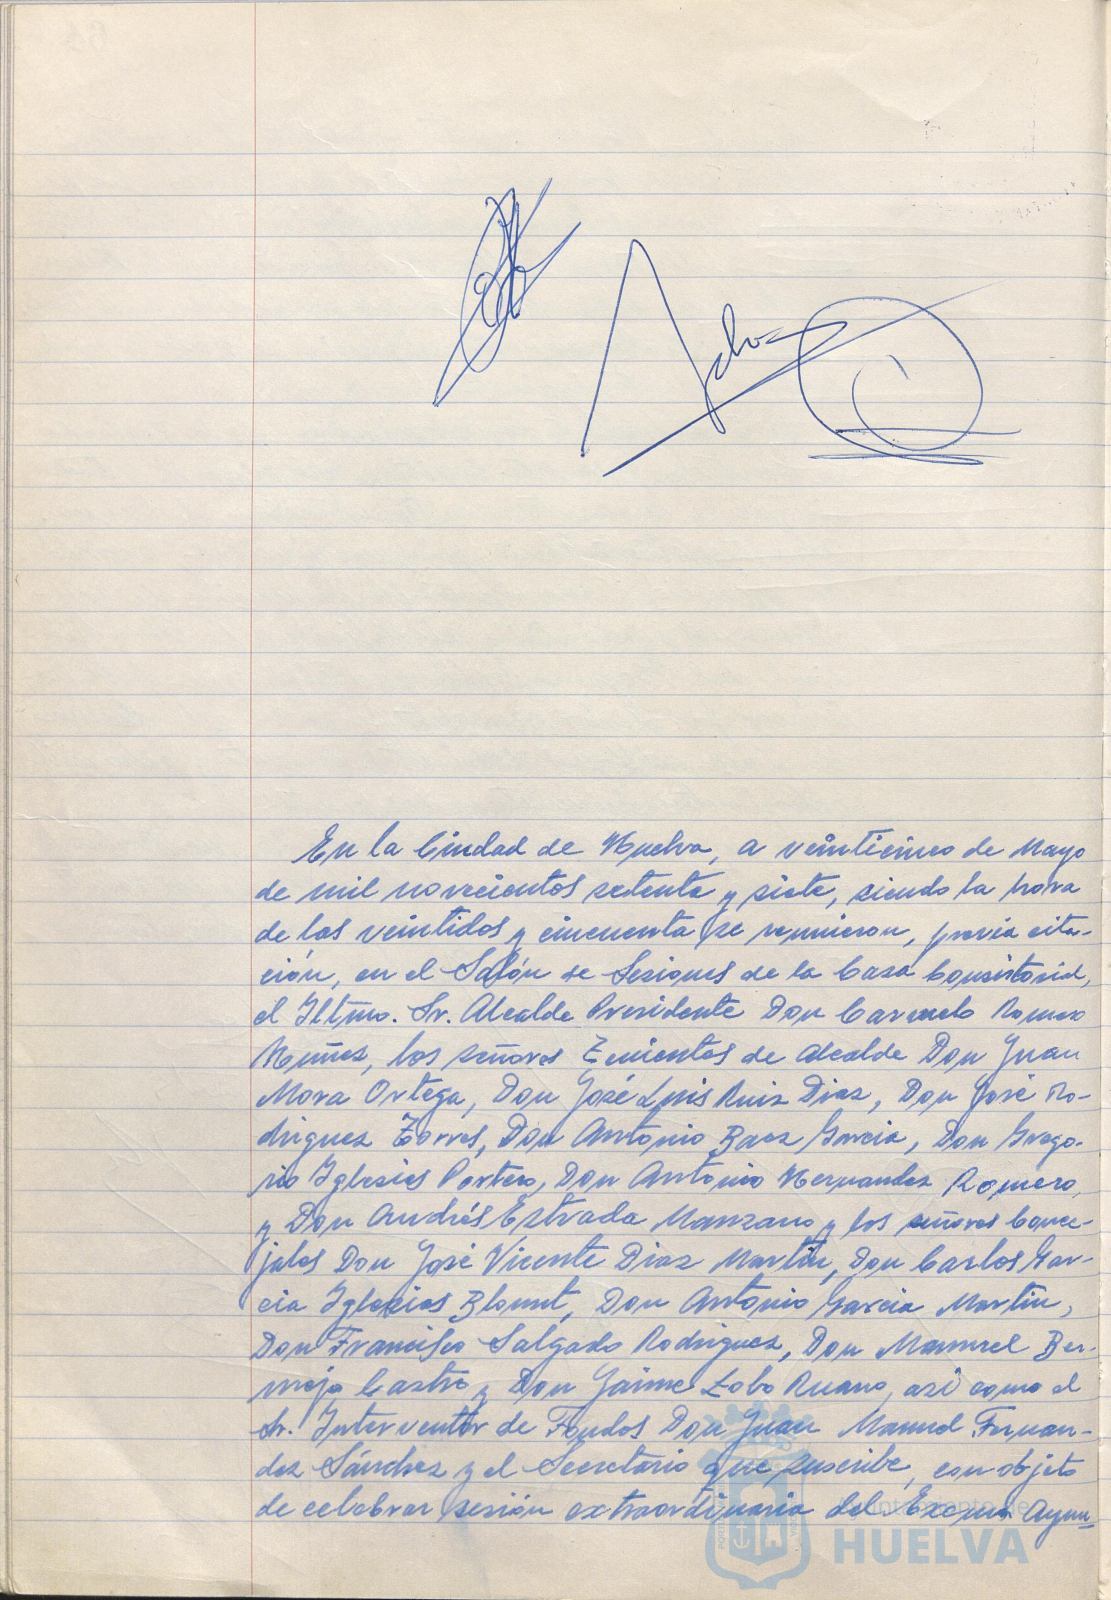 En la Ciudad de Huelva, a veinticinco de Mayo
de mil novecientos setenta y siete, siendo la hora
de las veintidos y cincuenta se reunieron, previa cita-
ción, en el Salón de Sesiones de la Casa Consistorial,
el Iltmo. Sr. Alcalde Presidente Don Carmelo Romero
Núñez, los señores Tenientes de Alcalde Don Juan
Mora Ortega, Don José Luis Ruiz Diaz, Don José Ro-
driguez Torres, Don Antonio Baez Garcia, Don Grego-
rio Iglesias Portero, Don Antonio Hernandez Romero,
y Don Andrés Estrada Manzano y los señores Conce-
jales Don José Vicente Diaz Martin, Don Carlos Gar-
cia Iglesias Blount, Don Antonio Garcia Martin,
Don Francisco Salgado Rodriguez, Don Manuel Ber-
mejo Castro y Don Jaime Lobo Ruano, asi como el
Sr. Interventor de Fondos Don Juan Manuel Fernan-
dez Sánchez y el Secretario que suscribe, con objeto
de celebrar sesión extraordinaria del Excmo Ayun-
Ayuntamiento de
HUELVA